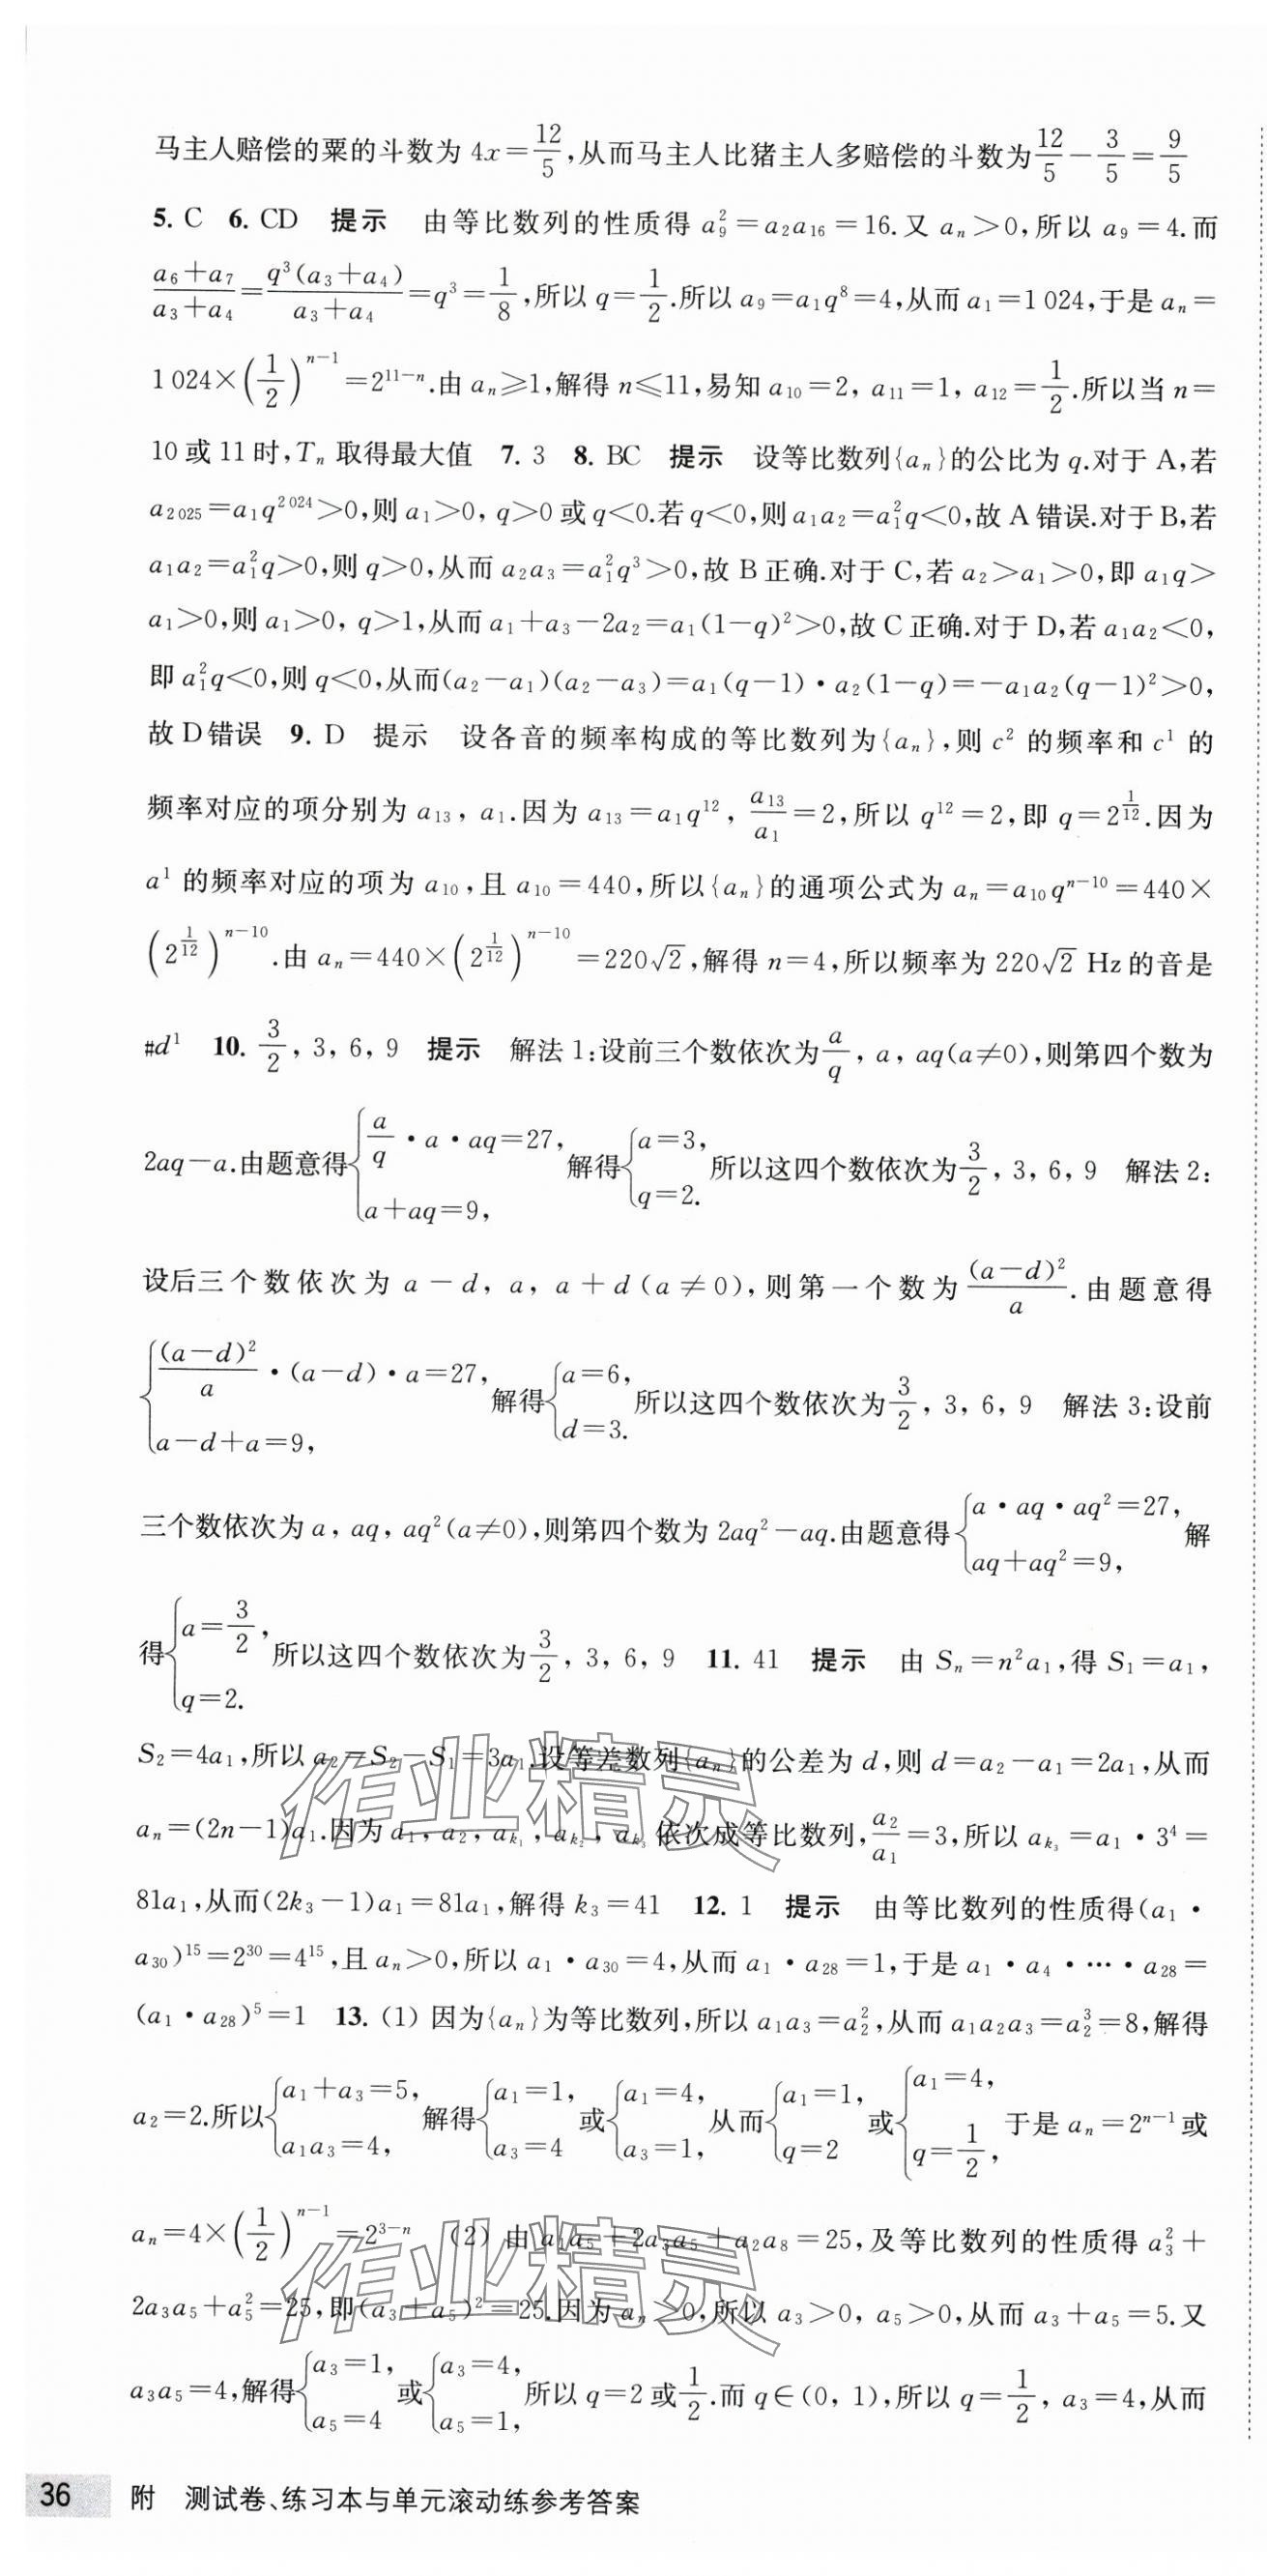 马主人赔偿的粟的斗数为 4x=12/5,从而马主人比猪主人多赔偿的斗数为12/5-3/5=9/5
5. C 6. CD 提示 由等比数列的性质得 a₉²=a₂a₁₆=16.又 aₙ>0,所以 a₉=4.而
(a₆+a₇)/(a₃+a₄)=q³(a₃+a₄)/(a₃+a₄)=q³=1/8,所以 q=1/2.所以 a₉=a₁q⁸=4,从而 a₁=1 024,于是 aₙ=
1 024×(1/2)ⁿ⁻¹=2¹¹⁻ⁿ.由 aₙ≥1,解得 n≤11,易知 a₁₀=2, a₁₁=1, a₁₂=1/2.所以当 n=
10 或 11 时,Tₙ 取得最大值 7. 3 8. BC 提示 设等比数列{aₙ}的公比为 q.对于 A,若
a₂₀₂₅=a₁q²⁰²⁴>0,则 a₁>0, q>0 或 q<0.若 q<0,则 a₁a₂=a₁²q<0,故 A 错误.对于 B,若
a₁a₂=a₁²q>0,则 q>0,从而 a₂a₃=a₁²q³>0,故 B 正确.对于 C,若 a₂>a₁>0,即 a₁q>
a₁>0,则 a₁>0, q>1,从而 a₁+a₃-2a₂=a₁(1-q)²>0,故 C 正确.对于 D,若 a₁a₂<0,
即 a₁²q<0,则 q<0,从而(a₂-a₁)(a₂-a₃)=a₁(q-1)·a₂(1-q)=-a₁a₂(q-1)²>0,
故 D 错误 9. D 提示 设各音的频率构成的等比数列为{aₙ},则 c² 的频率和 c¹ 的
频率对应的项分别为 a₁₃, a₁.因为 a₁₃=a₁q¹², a₁₃/a₁=2,所以 q¹²=2,即 q=2^(1/12).因为
a¹ 的频率对应的项为 a₁₀,且 a₁₀=440,所以{aₙ}的通项公式为 aₙ=a₁₀qⁿ⁻¹⁰=440×
(2^(1/12))ⁿ⁻¹⁰.由 aₙ=440×(2^(1/12))ⁿ⁻¹⁰=220√2,解得 n=4,所以频率为 220√2 Hz 的音是
#d¹ 10. 3/2, 3, 6, 9 提示 解法 1:设前三个数依次为a/q, a, aq(a≠0),则第四个数为
2aq-a.由题意得{a/q·a·aq=27, a+aq=9, 解得{a=3, q=2. 所以这四个数依次为3/2, 3, 6, 9 解法 2:
设后三个数依次为 a-d, a, a+d(a≠0),则第一个数为(a-d)²/a.由题意得
{(a-d)²/a·(a-d)·a=27, a-d+a=9, 解得{a=6, d=3. 所以这四个数依次为3/2, 3, 6, 9 解法 3:设前
三个数依次为 a, aq, aq²(a≠0),则第四个数为 2aq²-aq.由题意得{a·aq·aq²=27, aq+aq²=9, 解
得{a=3/2, q=2. 所以这四个数依次为3/2, 3, 6, 9 11. 41 提示 由 Sₙ=n²a₁,得 S₁=a₁,
S₂=4a₁,所以 a₂=S₂-S₁=3a₁.设等差数列{aₙ}的公差为 d,则 d=a₂-a₁=2a₁,从而
aₙ=(2n-1)a₁.因为 a₁, a₂, a_k₁, a_k₂, a_k₃ 依次成等比数列,a₂/a₁=3,所以 a_k₃=a₁·3⁴=
81a₁,从而(2k₃-1)a₁=81a₁,解得 k₃=41 12. 1 提示 由等比数列的性质得(a₁·
a₃₀)¹⁵=2³⁰=4¹⁵,且 aₙ>0,所以 a₁·a₃₀=4,从而 a₁·a₂₈=1,于是 a₁·a₄·…·a₂₈=
(a₁·a₂₈)⁵=1 13. (1) 因为{aₙ}为等比数列,所以 a₁a₃=a₂²,从而 a₁a₂a₃=a₂³=8,解得
a₂=2.所以{a₁+a₃=5, a₁a₃=4, 解得{a₁=1, a₃=4 或{a₁=4, a₃=1, 从而{a₁=1, q=2 或{a₁=4, q=1/2, 于是 aₙ=2ⁿ⁻¹或
aₙ=4×(1/2)ⁿ⁻¹=2³⁻ⁿ (2) 由 a₁a₅+2a₃a₅+a₂a₈=25,及等比数列的性质得 a₃²+
2a₃a₅+a₅²=25,即(a₃+a₅)²=25.因为 aₙ>0,所以 a₃>0, a₅>0,从而 a₃+a₅=5.又
a₃a₅=4,解得{a₃=1, a₅=4 或{a₃=4, a₅=1, 所以 q=2 或1/2.而 q∈(0, 1),所以 q=1/2, a₃=4,从而
作业精灵
作业精灵
36 附 测试卷、练习本与单元滚动练参考答案